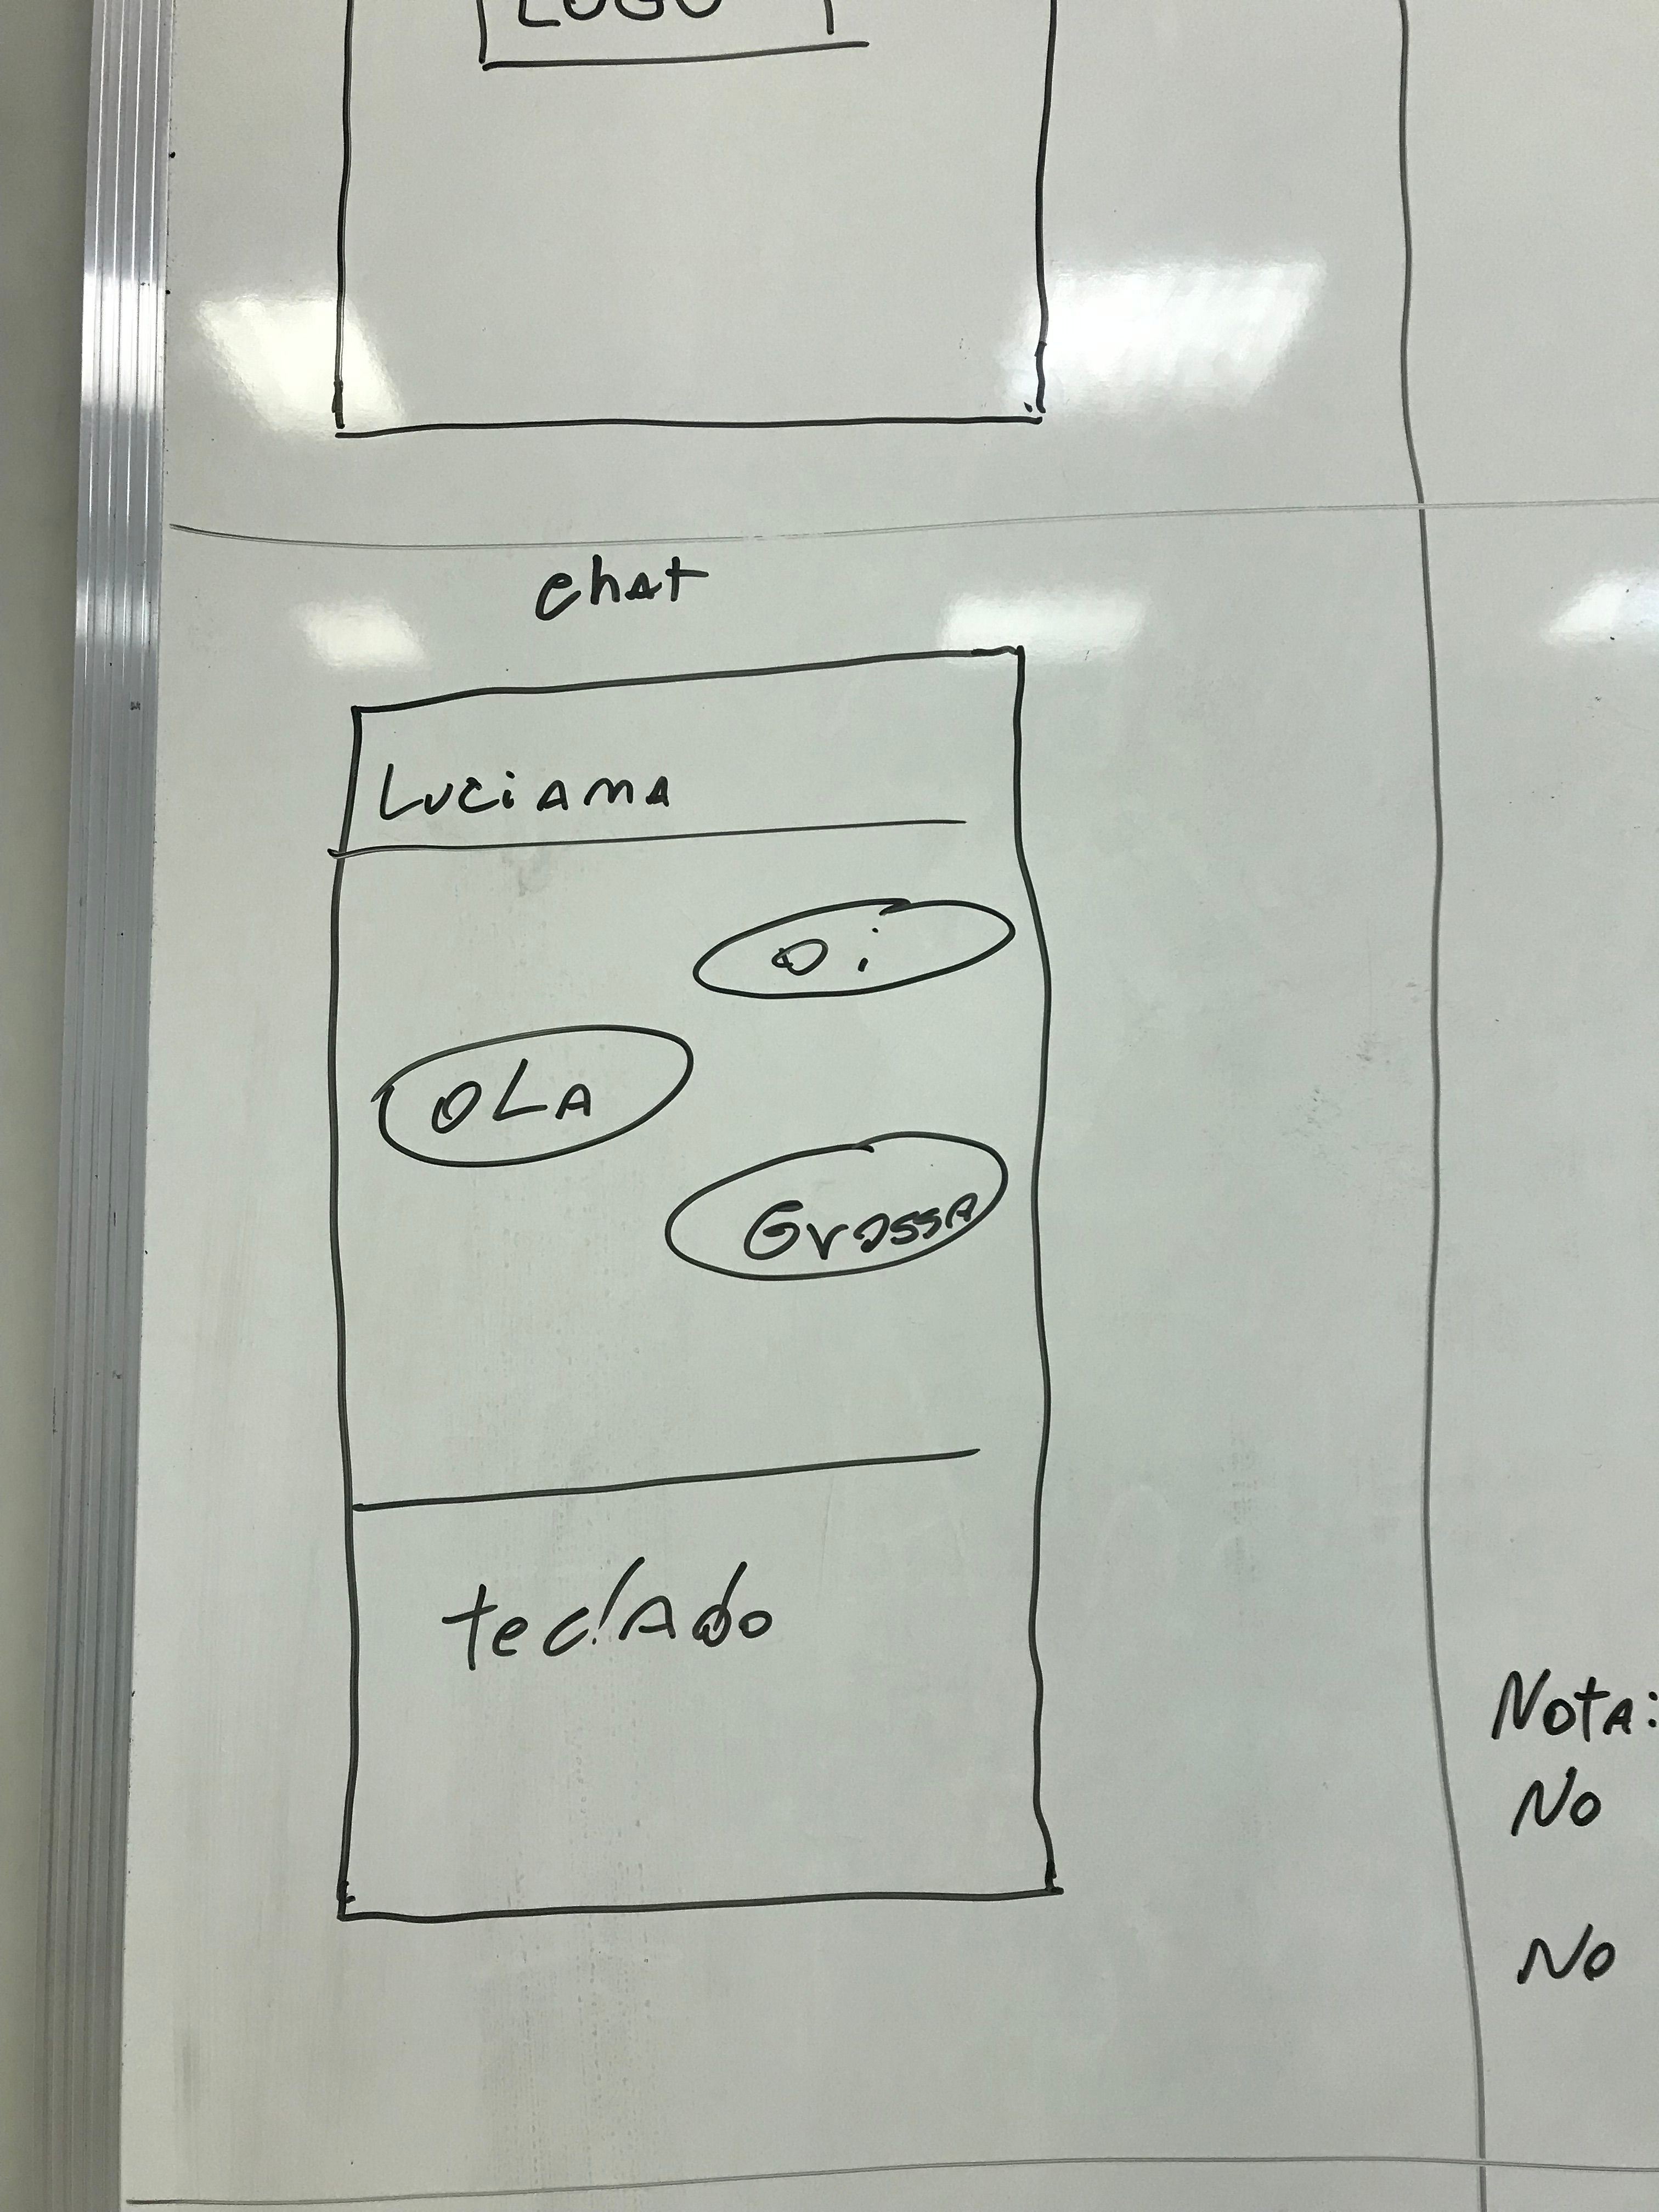 LOGO
chat
Luciana
oi
OLA
Grossa
teclado
Nota:
No
No